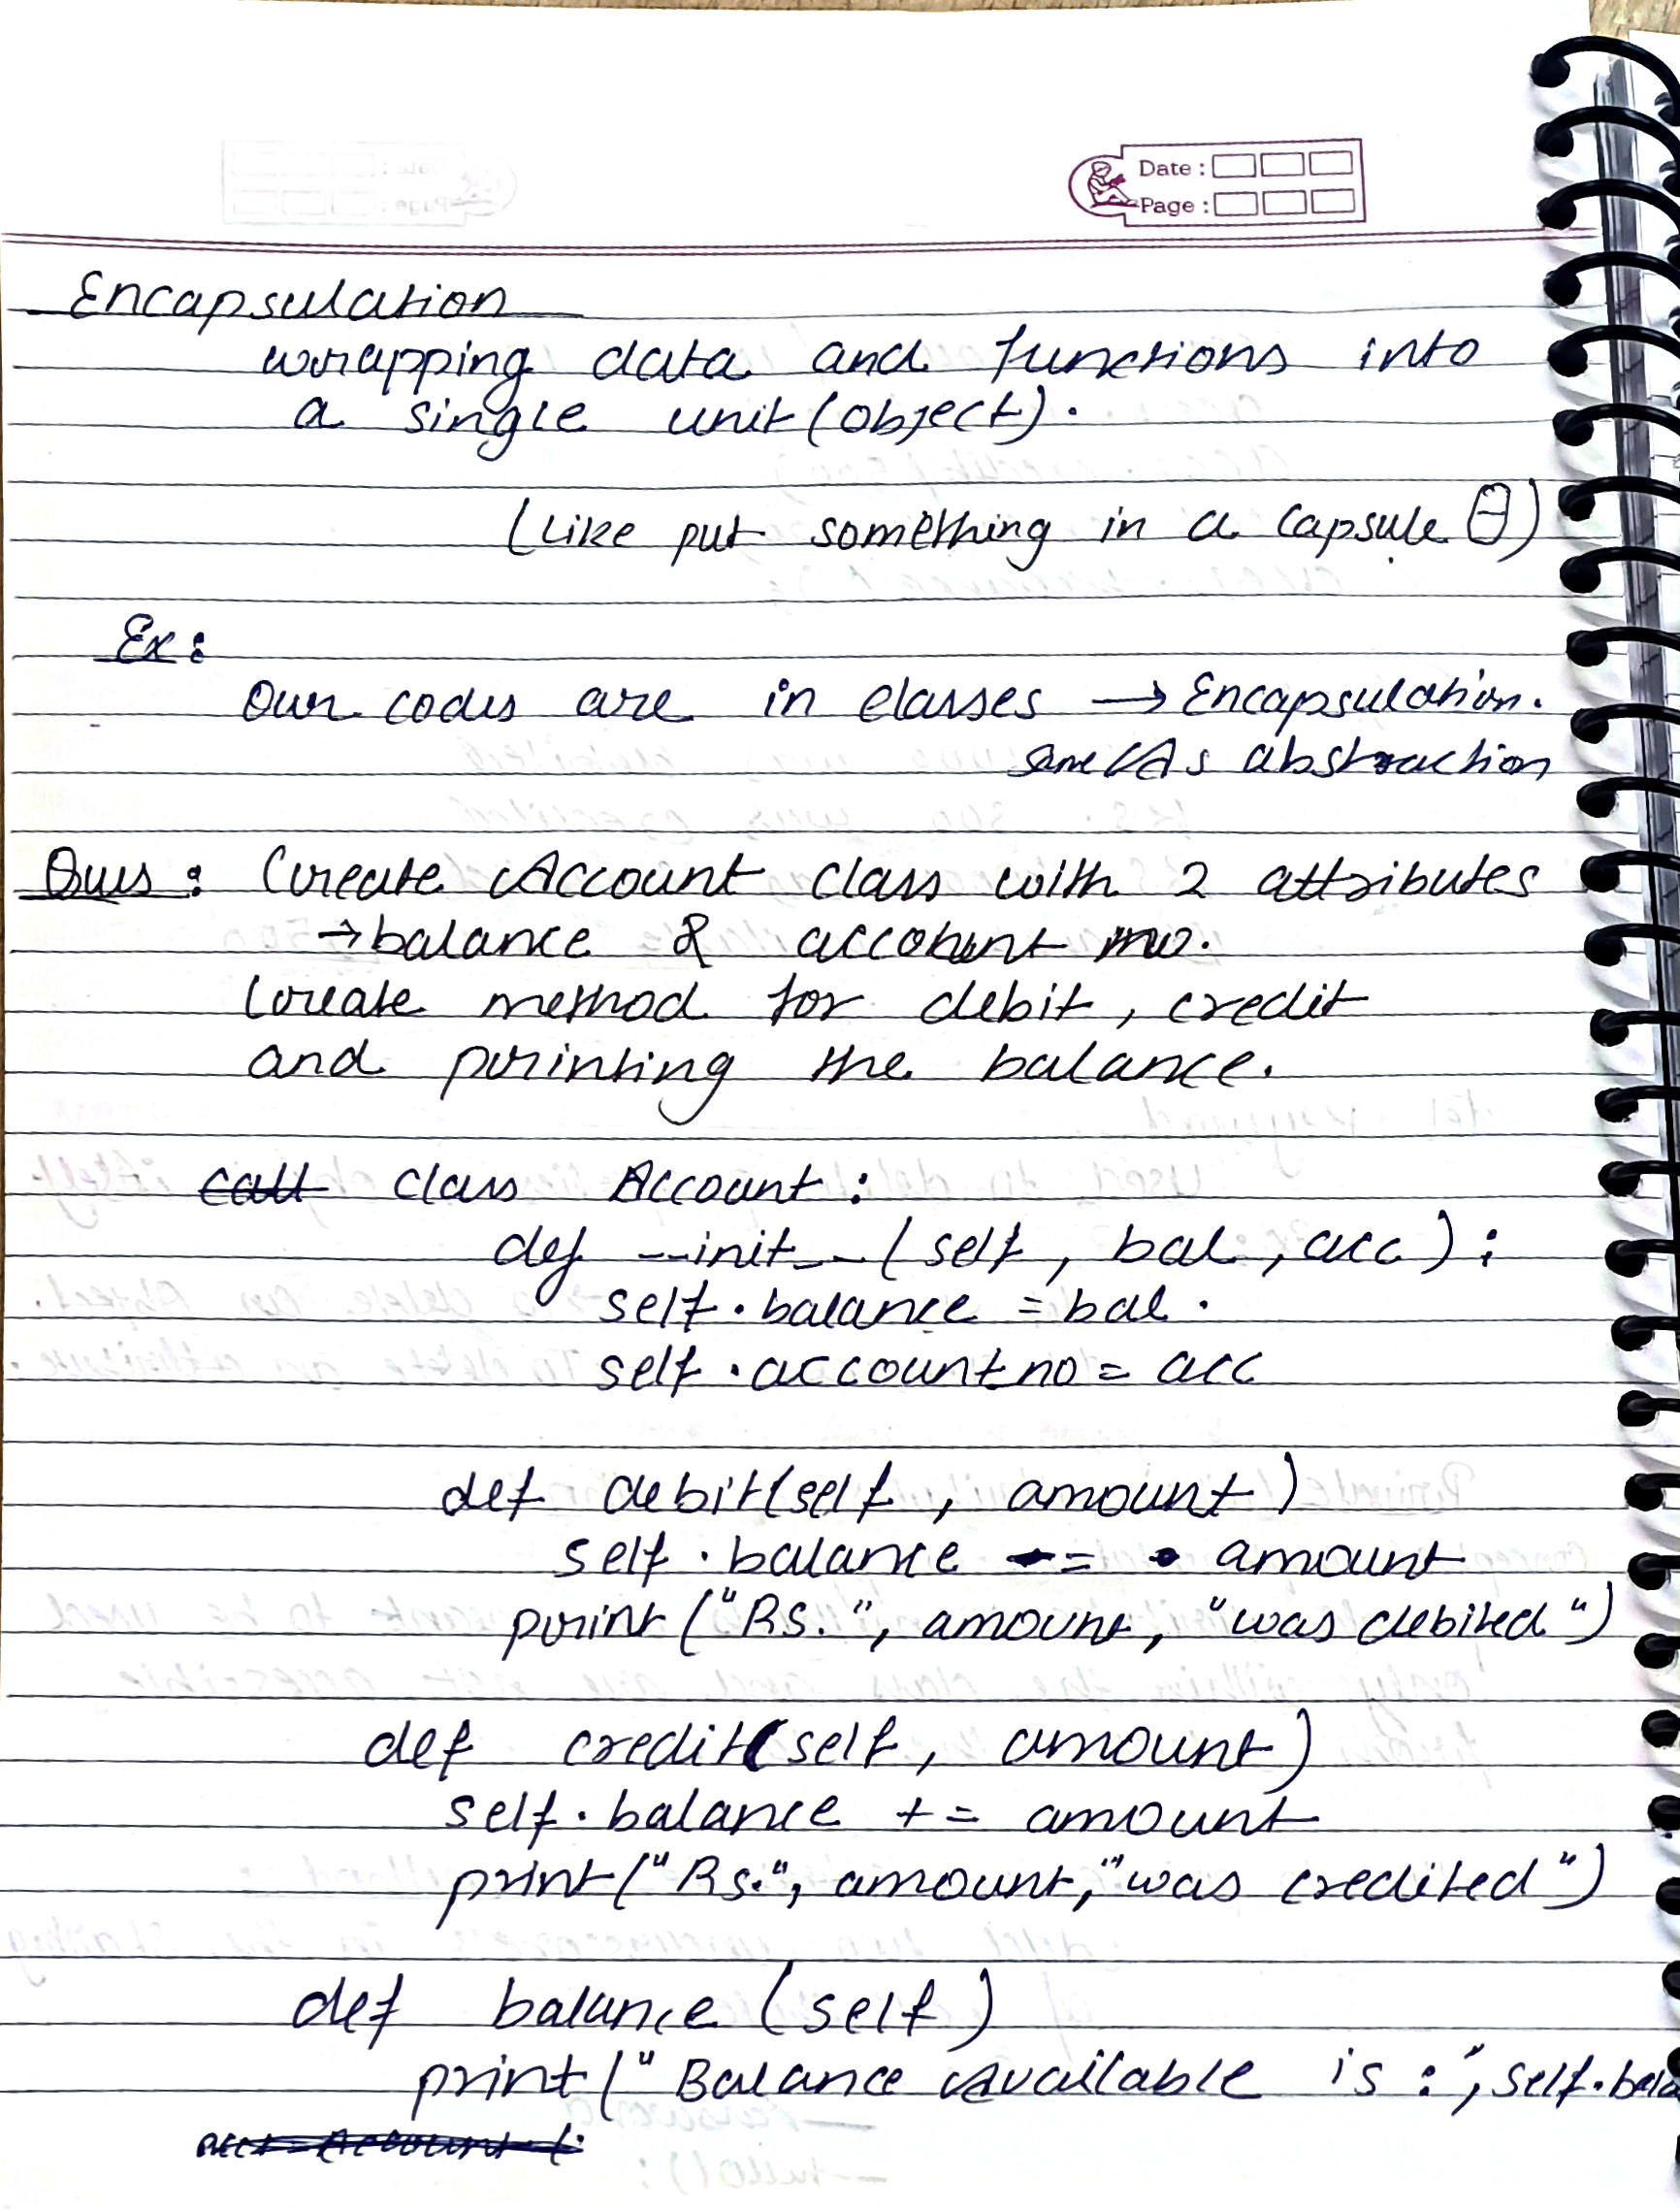 Date :
Page :
Encapsulation
wrapping data and functions into
a single unit (object).
(Like put something in a capsule)
Ex:
Our codes are in classes → Encapsulation.
same As abstraction
Ques : Create Account class with 2 attributes
→ balance & account no.
Create method for debit, credit
and printing the balance.
call class Account :
def __init__(self, bal, acc) :
self.balance = bal.
self.account no = acc
def debit(self, amount)
self.balance -= amount
print("Rs.", amount, "was debited")
def credit(self, amount)
self.balance += amount
print("Rs.", amount, "was credited")
def balance (self)
print("Balance Available is :", self.bala